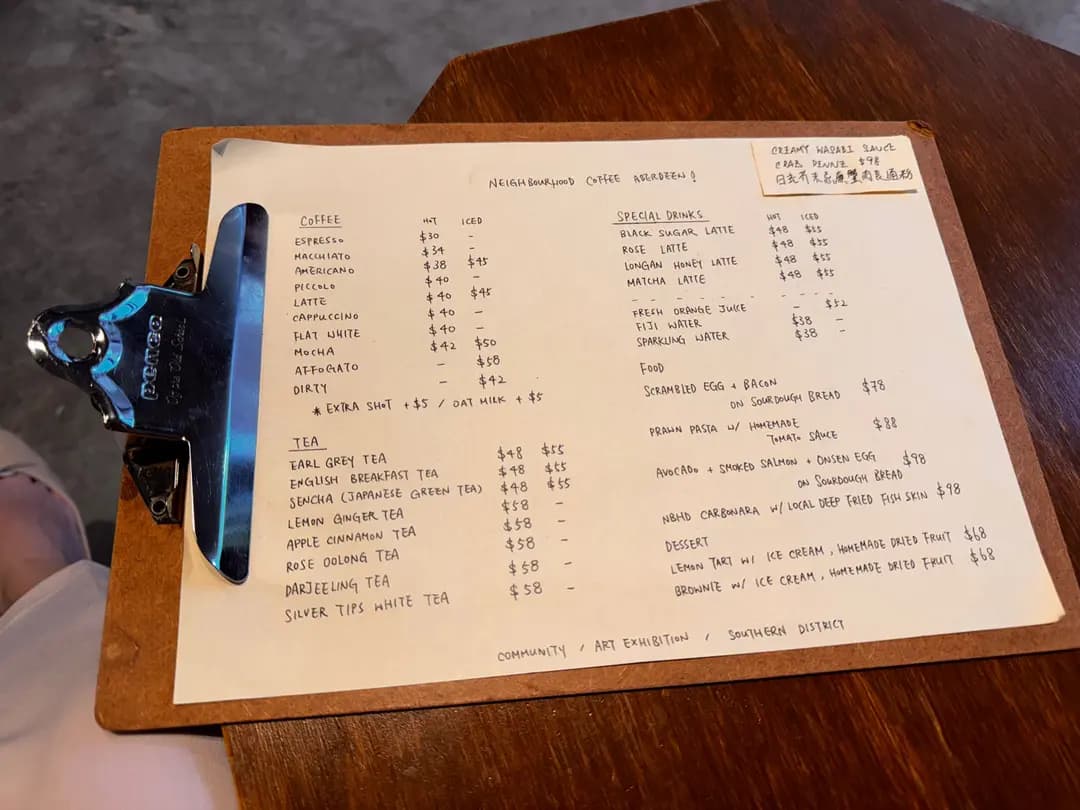 NEIGHBOURHOOD COFFEE ABERDEEN!
CREAMY WASABI SAUCE
CRAB PENNE $98
日式芥末忌廉蟹肉長通粉
COFFEE HOT ICED
ESPRESSO $30 -
MACCHIATO $34 -
AMERICANO $38 $45
PICCOLO $40 -
LATTE $40 $45
CAPPUCCINO $40 -
FLAT WHITE $40 -
MOCHA $42 $50
AFFOGATO - $58
DIRTY - $42
* EXTRA SHOT +$5 / OAT MILK +$5
TEA
EARL GREY TEA $48 $55
ENGLISH BREAKFAST TEA $48 $55
SENCHA (JAPANESE GREEN TEA) $48 $55
LEMON GINGER TEA $58 -
APPLE CINNAMON TEA $58 -
ROSE OOLONG TEA $58 -
DARJEELING TEA $58 -
SILVER TIPS WHITE TEA $58 -
SPECIAL DRINKS HOT ICED
BLACK SUGAR LATTE $48 $55
ROSE LATTE $48 $55
LONGAN HONEY LATTE $48 $55
MATCHA LATTE $48 $55
FRESH ORANGE JUICE - $52
FIJI WATER $38 -
SPARKLING WATER $38 -
FOOD
SCRAMBLED EGG + BACON
ON SOURDOUGH BREAD $78
PRAWN PASTA W/ HOMEMADE
TOMATO SAUCE $88
AVOCADO + SMOKED SALMON + ONSEN EGG
ON SOURDOUGH BREAD $98
NBHD CARBONARA W/ LOCAL DEEP FRIED FISH SKIN $98
DESSERT
LEMON TART W/ ICE CREAM, HOMEMADE DRIED FRUIT $68
BROWNIE W/ ICE CREAM, HOMEMADE DRIED FRUIT $68
COMMUNITY / ART EXHIBITION / SOUTHERN DISTRICT
penco